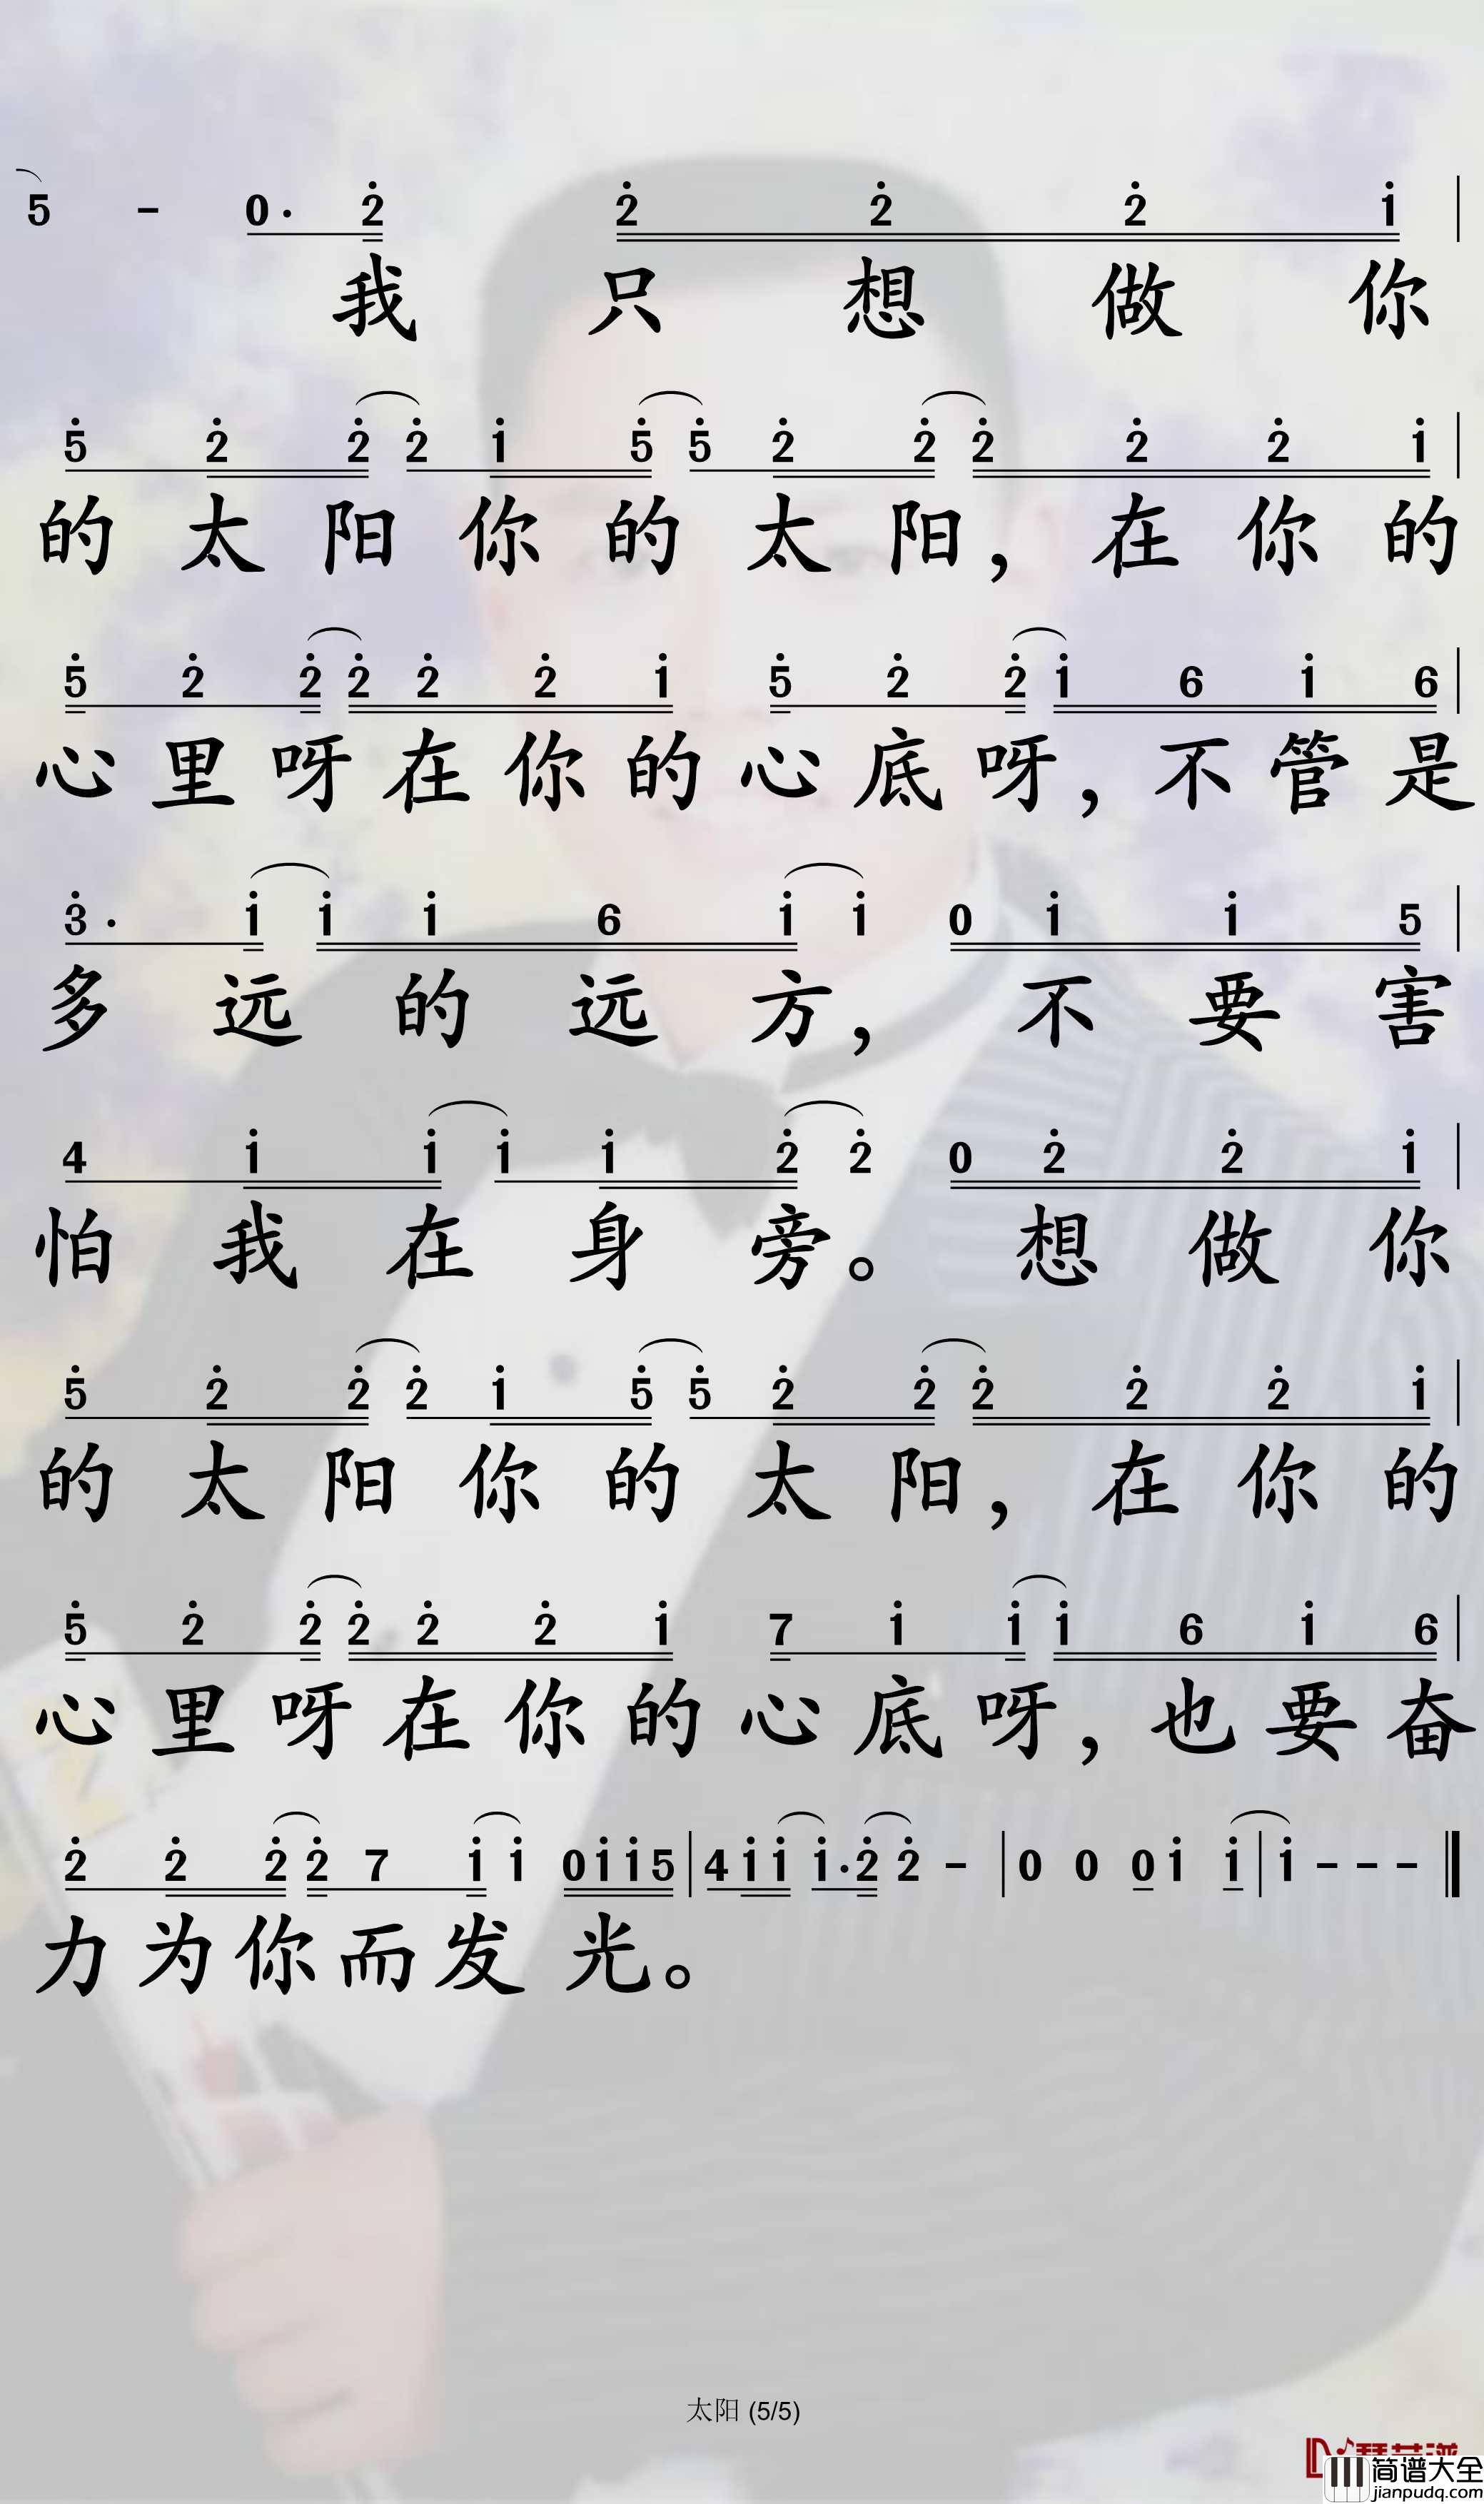 5 - 0· 2̇ 2̇ 2̇ 2̇ 1̇ |
我 只 想 做 你
5̇ 2̇ 2̇ 2̇ 1̇ 5̇ 5̇ 2̇ 2̇ 2̇ 2̇ 2̇ 1̇ |
的 太 阳 你 的 太 阳， 在 你 的
5̇ 2̇ 2̇ 2̇ 2̇ 2̇ 1̇ 5̇ 2̇ 2̇ 1̇ 6 1̇ 6 |
心 里 呀 在 你 的 心 底 呀， 不 管 是
3̇· 1̇ 1̇ 1̇ 6 1̇ 1̇ 0 1̇ 1̇ 5 |
多 远 的 远 方， 不 要 害
4 1̇ 1̇ 1̇ 1̇ 2̇ 2̇ 0 2̇ 2̇ 1̇ |
怕 我 在 身 旁。 想 做 你
5̇ 2̇ 2̇ 2̇ 1̇ 5̇ 5̇ 2̇ 2̇ 2̇ 2̇ 2̇ 1̇ |
的 太 阳 你 的 太 阳， 在 你 的
5̇ 2̇ 2̇ 2̇ 2̇ 2̇ 1̇ 7 1̇ 1̇ 1̇ 6 1̇ 6 |
心 里 呀 在 你 的 心 底 呀， 也 要 奋
2̇ 2̇ 2̇ 2̇ 7 1̇ 1̇ 0 1̇ 1̇ 5 | 4 1̇ 1̇ 1̇· 2̇ 2̇ - | 0 0 0 1̇ 1̇ | 1̇ - - - ‖
力 为 你 而 发 光。
太阳 (5/5)
简谱大全
jianpudq.com